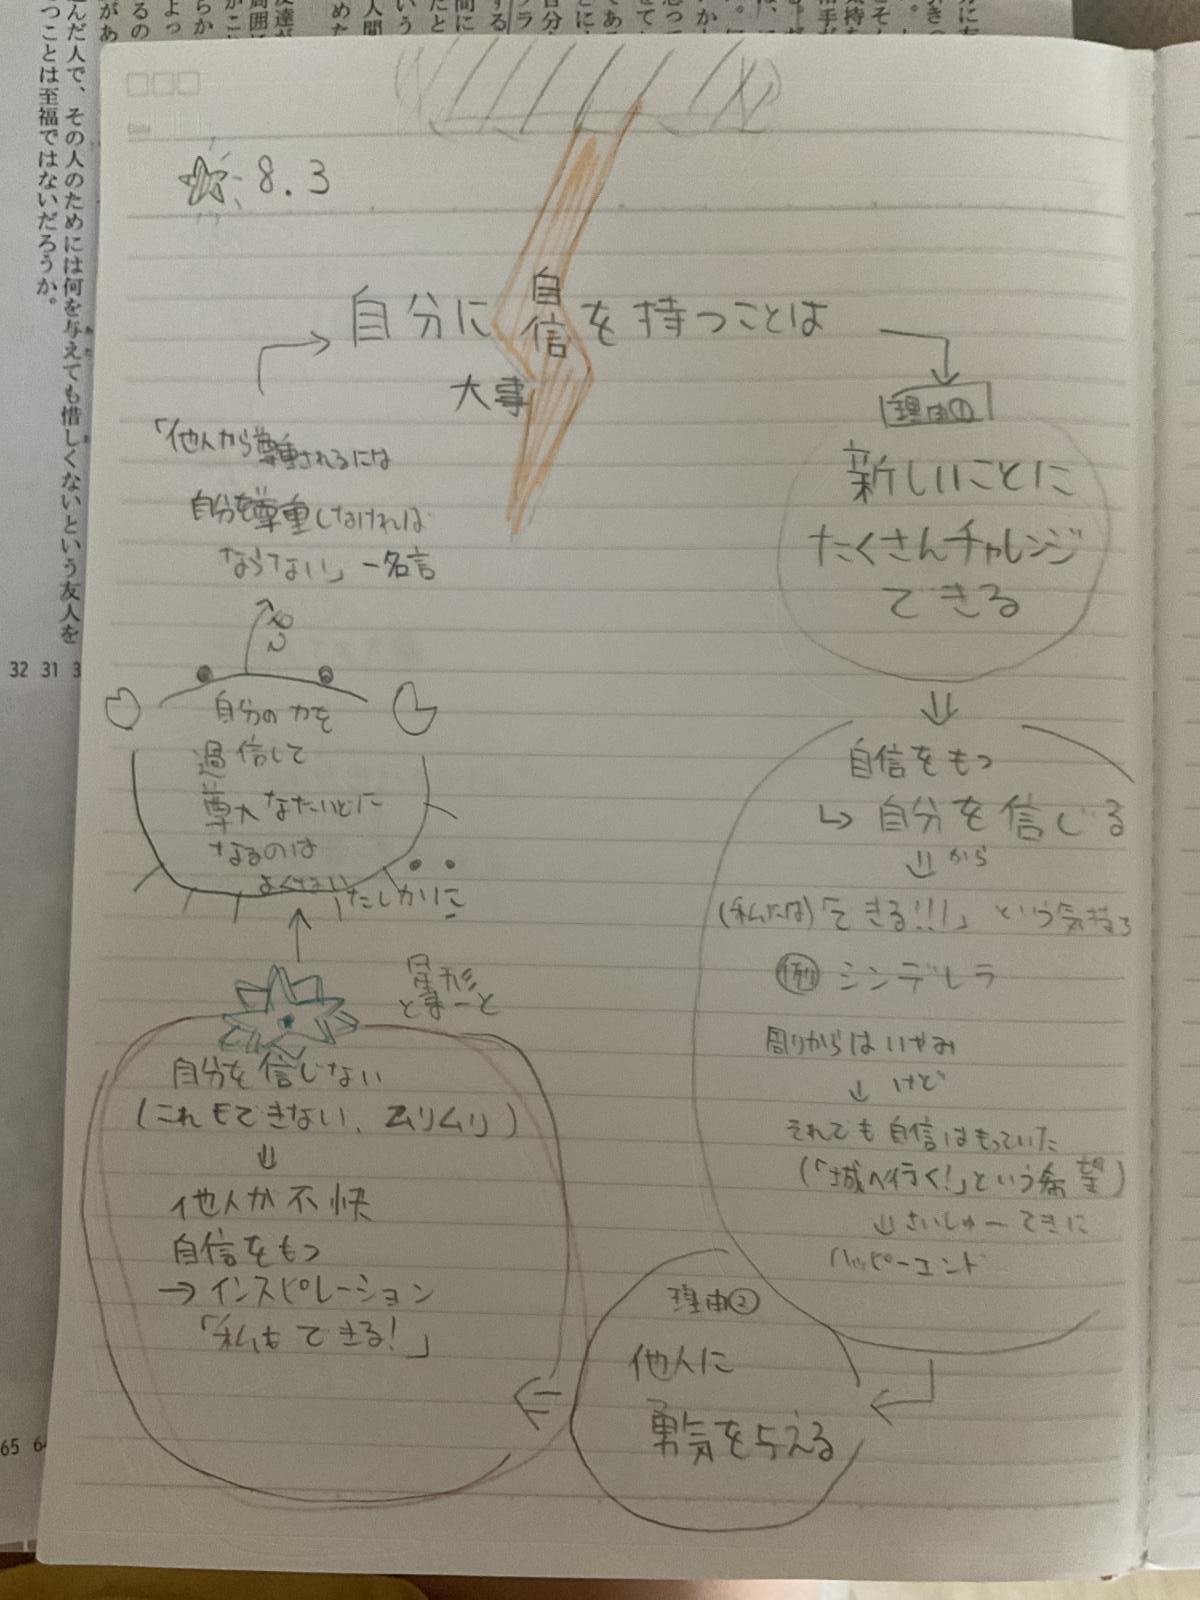 8.3
自分に自信を持つことは
大事
理由①
新しいことに
たくさんチャレンジ
できる
自信をもつ
↳ 自分を信じる
⇓ から
(私には)「できる!!!」という気持ち
例 シンデレラ
周りからはいやみ
↓ けど
それでも自信はもっていた
(「城へ行く!」という希望)
⇓ さいしゅーてきに
ハッピーエンド
理由②
他人に
勇気を与える
自分を信じない
(これもできない、ムリムリ)
⇓
他人が不快
自信をもつ
→ インスピレーション
「私もできる!」
星形
たしかに
自分の力を
過信して
尊大なたいどに
なるのは
よくない
「他人から尊重されるには
自分を尊重しなければ
ならない」ー名言
んだ人で、その人のためには何を与えても惜しくないという友人を
つことは至福ではないだろうか。
32 31 3
65 6